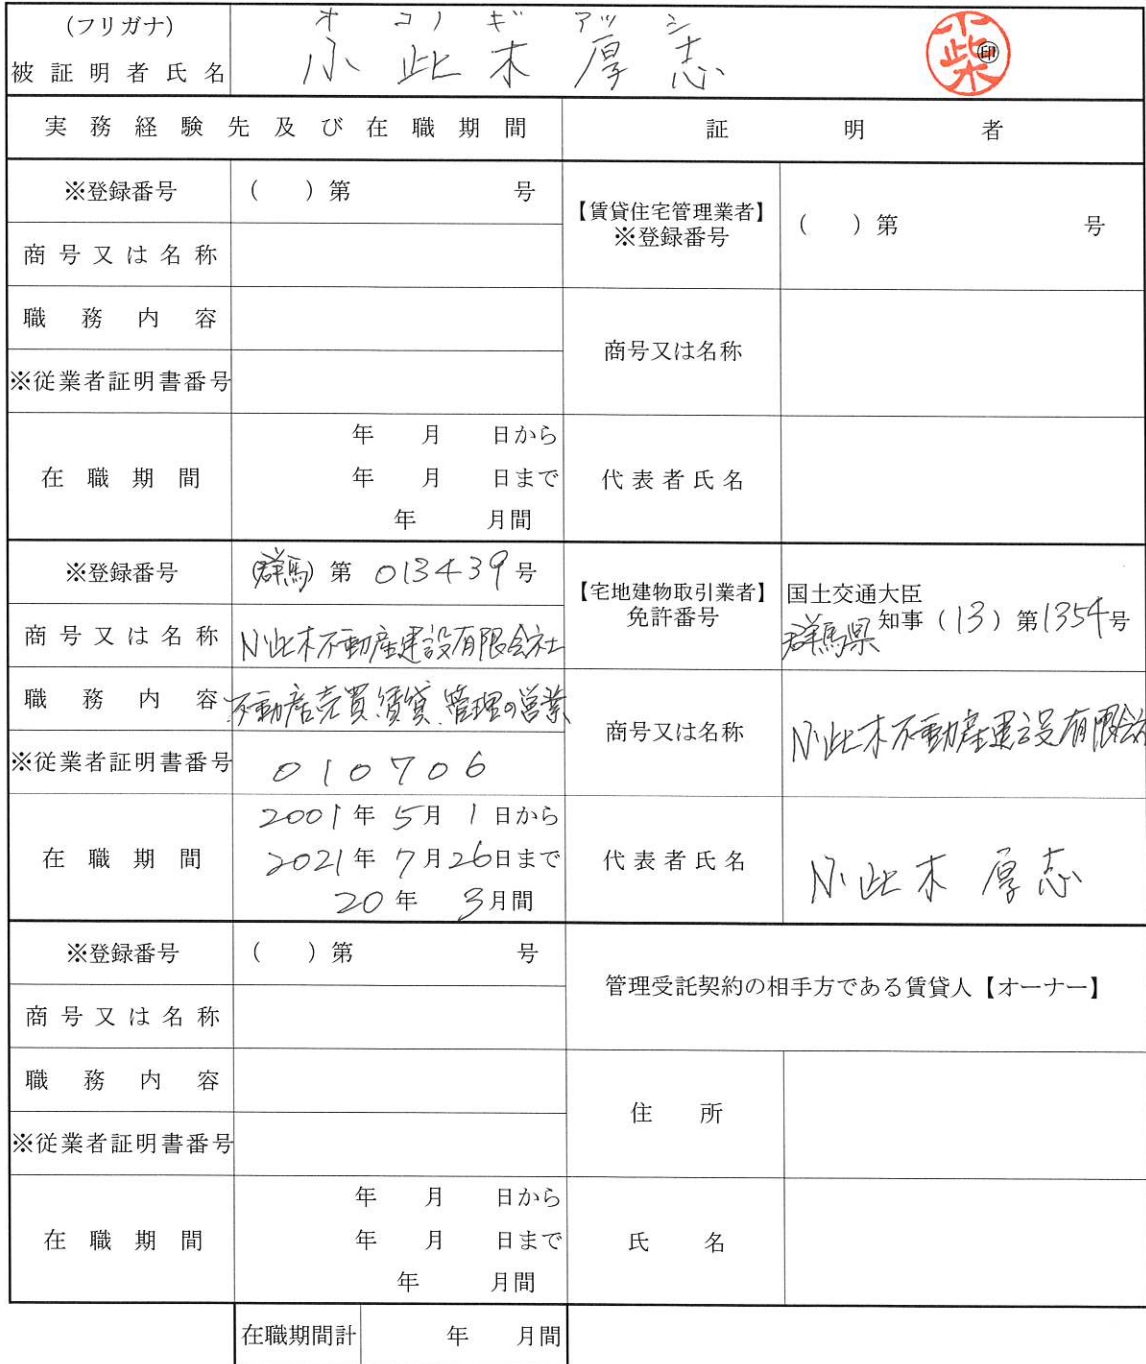 (フリガナ) オコノギ アツシ
被証明者氏名 小此木厚志 ㊞
実務経験先及び在職期間 証明者
※登録番号 ( )第 号
商号又は名称
職務内容
※従業者証明書番号
在職期間
年 月 日から
年 月 日まで
年 月間
【賃貸住宅管理業者】
※登録番号 ( )第 号
商号又は名称
代表者氏名
※登録番号 (群馬)第013439号
商号又は名称 小此木不動産建設有限会社
職務内容 不動産売買、賃貸、管理の営業
※従業者証明書番号 010706
在職期間
2001年5月1日から
2021年7月26日まで
20年3月間
【宅地建物取引業者】
免許番号
国土交通大臣
群馬県知事(13)第1354号
商号又は名称 小此木不動産建設有限会社
代表者氏名 小此木 厚志
※登録番号 ( )第 号
商号又は名称
職務内容
※従業者証明書番号
在職期間
年 月 日から
年 月 日まで
年 月間
管理受託契約の相手方である賃貸人【オーナー】
住所
氏名
在職期間計 年 月間